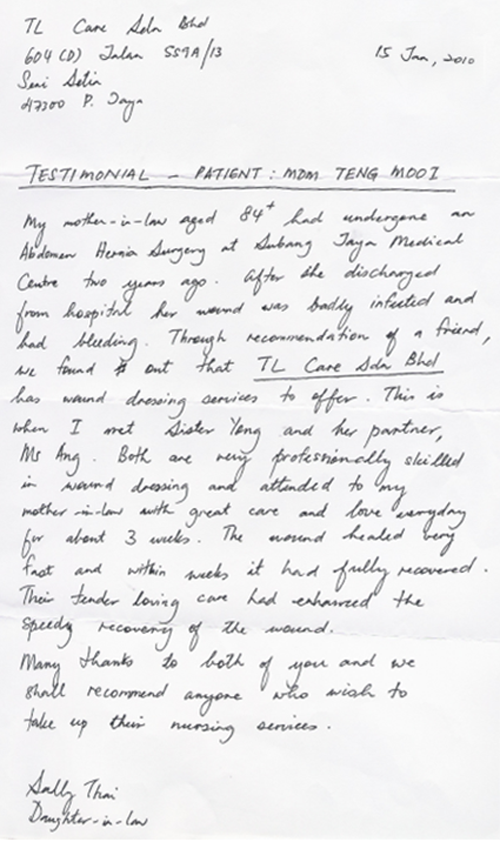 TL Care Sdn Bhd
604 (D) Jalan SS9A/13
15 Jan, 2010
Seri Setia
47300 P. Jaya
TESTIMONIAL – PATIENT : MDM TENG MOOI
My mother-in-law aged 84+ had undergone an
Abdomen Hernia Surgery at Subang Jaya Medical
Centre two years ago. After she discharged
from hospital her wound was badly infected and
had bleeding. Through recommendation of a friend,
we found out that TL Care Sdn Bhd
has wound dressing services to offer. This is
when I met Sister Yong and her partner,
Mr Ang. Both are very professionally skilled
in wound dressing and attended to my
mother-in-law with great care and love everyday
for about 3 weeks. The wound healed very
fast and within weeks it had fully recovered.
Their tender loving care had enhanced the
speedy recovery of the wound.
Many thanks to both of you and we
shall recommend anyone who wish to
take up their nursing services.
Sally Thai
Daughter-in-law